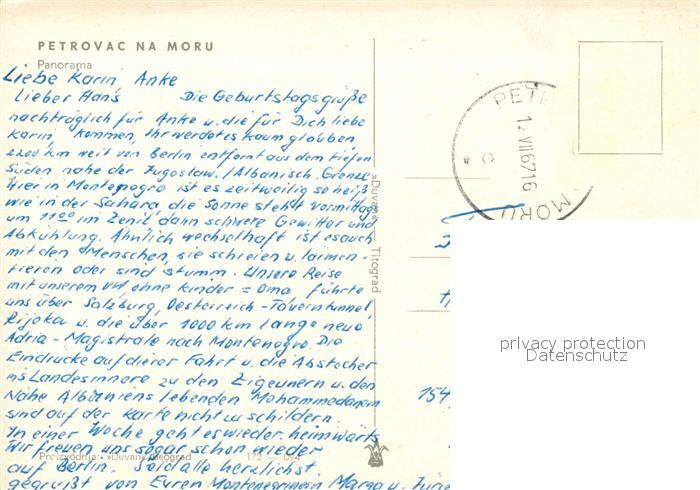 PETROVAC NA MORU
Panorama
Liebe Karin Anke
Lieber Hans Die Geburtstagsgrüße
nachträglich für Anke u. die für Dich liebe
Karin, kommen, Ihr werdet es kaum glauben,
2200 km weit von Berlin entfernt aus dem tiefen
Süden nahe der Jugoslaw./Albanisch. Grenze
Hier in Montenegro ist es zeitweilig so heiß
wie in der Sahara, die Sonne steht vormittag
um 11⁰⁰ im Zenit dann schwere Gewitter und
Abkühlung. Ähnlich wechselhaft ist es auch
mit den Menschen, sie schreien u. lärmen -
tieren oder sind stumm. Unsere Reise
mit unserem VW ohne Kinder = Oma führte
uns über Salzburg, Oesterreich - Tauerntunnel,
Rijeka u. die über 1000 km lange neue
Adria - Magistrale nach Montenegro. Die
Eindrücke auf dieser Fahrt u. die Abstecher
ins Landesinnere zu den Zigeunern u. den
Nähe Albaniens lebenden Mohammedanern
sind auf der Karte nicht zu schildern.
In einer Woche geht es wieder heimwärts
Wir freuen uns sogar schon wieder
auf Berlin. Seid alle herzlichst
gegrüßt von Euren Montenegrinern Marga u.
Proizvodnja: »Duvan« Beograd 172 — 094
»Duvan« Titograd
PET
12 VII 67 16
C
MORU
154
privacy protection
Datenschutz